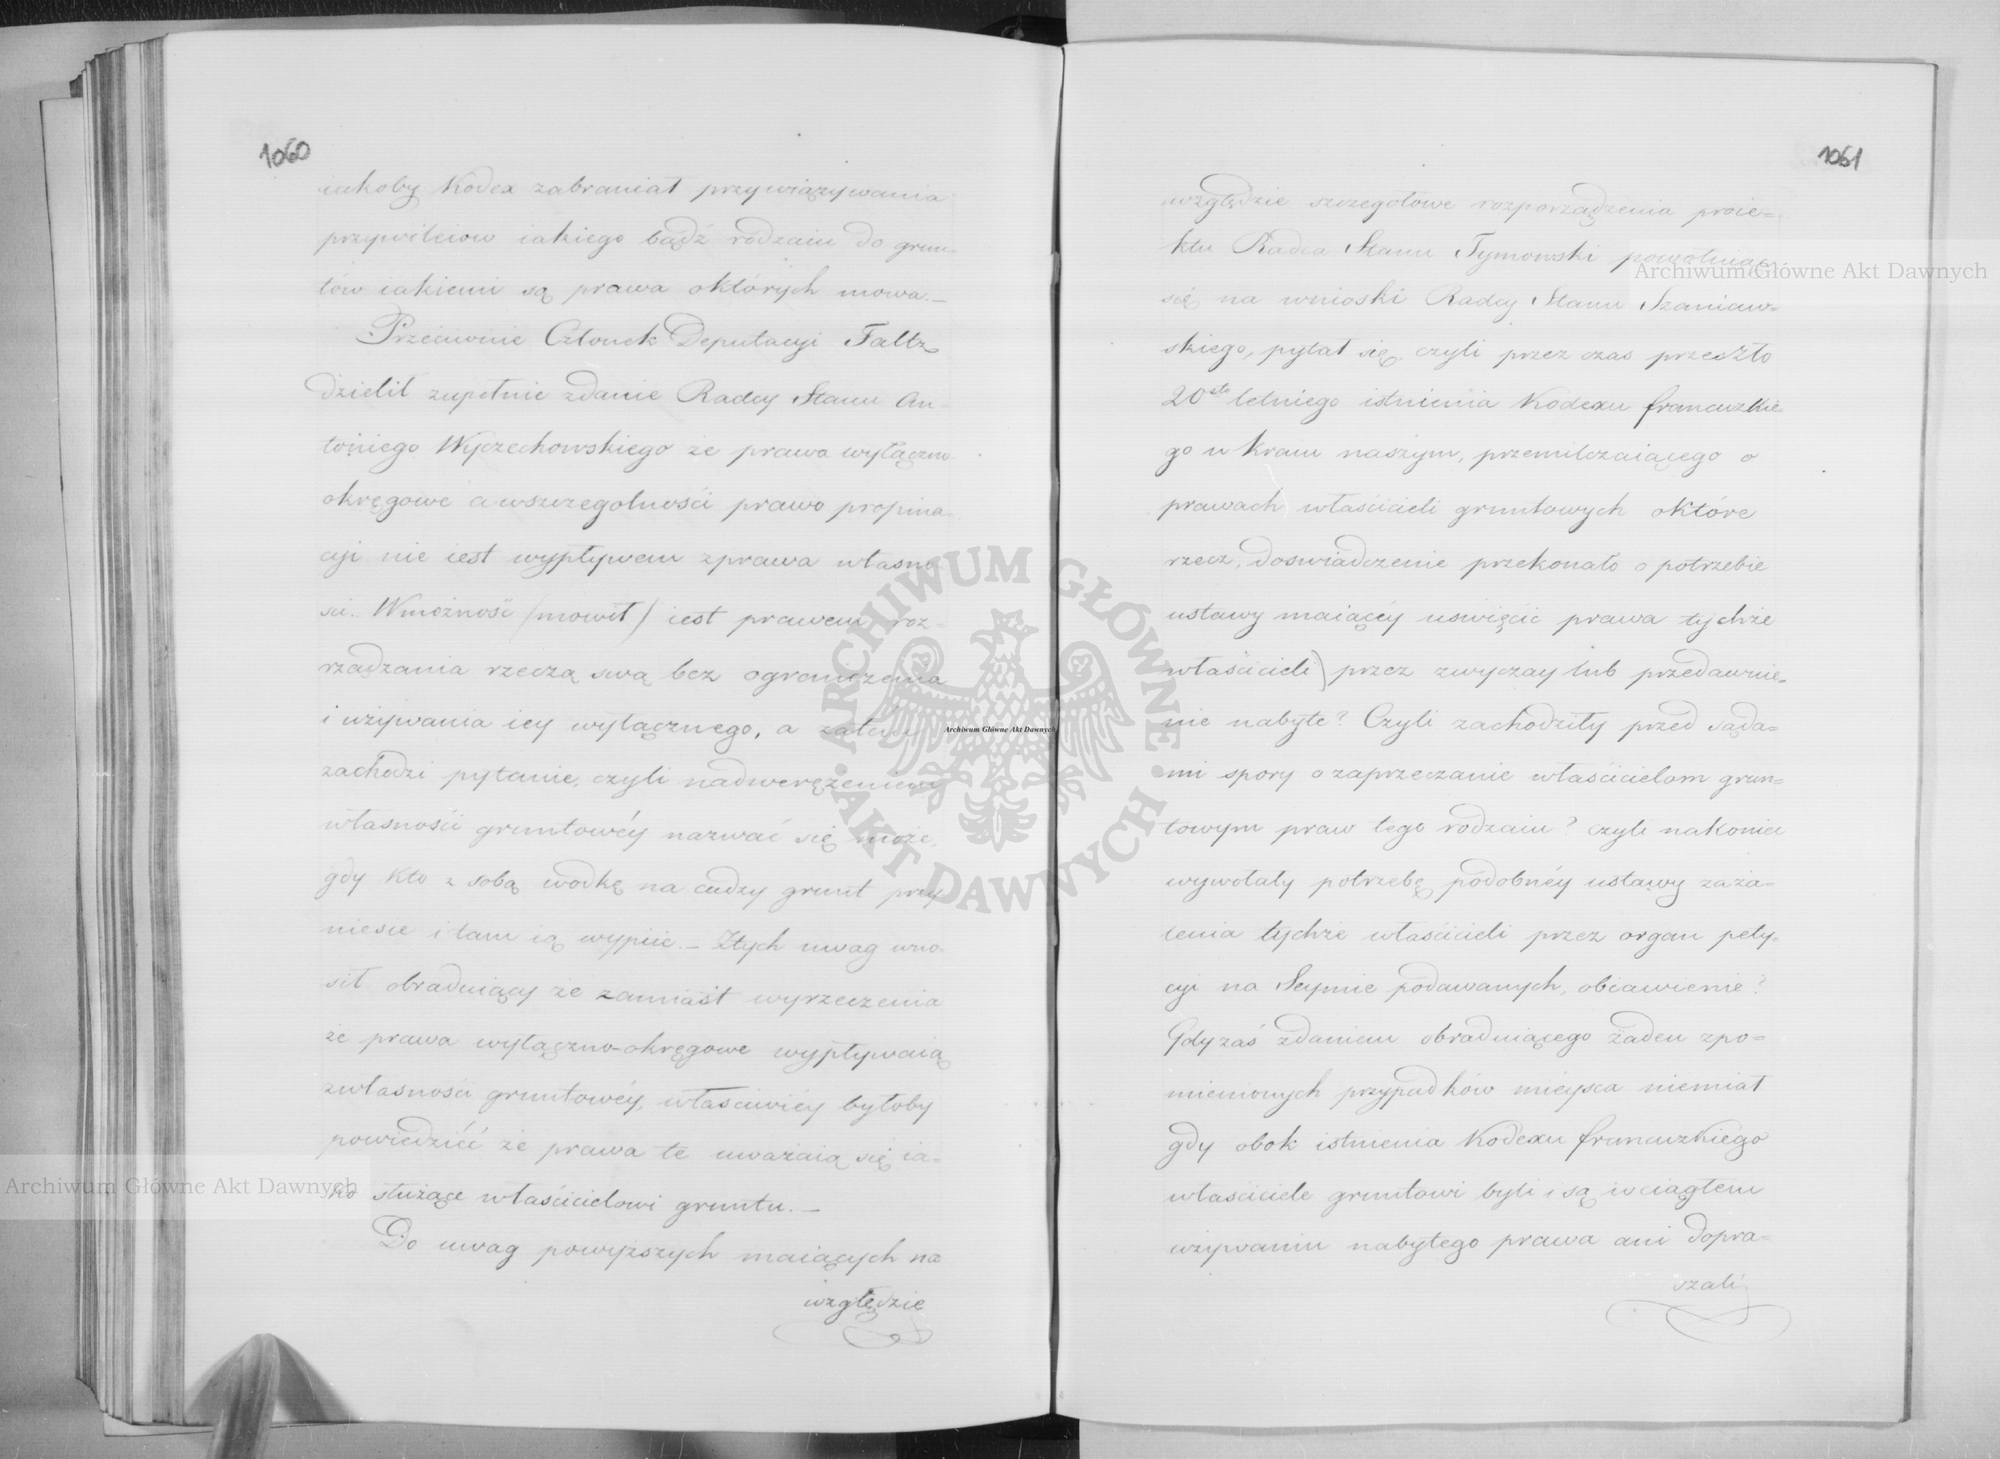 1060
iakoby Kodex zabraniał przywiązywania
przywileiow iakiego bądź rodzaiu do grun-
tów iakiemi są prawa októrych mowa.—
Przeciwnie Członek Deputacyi Faltz
dzielił zupełnie zdanie Radcy Stanu An-
toniego Wyczechowskiego że prawa wyłączno-
okręgowe awszczególności prawo propina-
cyi nie iest wypływem zprawa własno-
ści. Wmożność (mowił) iest prawem roz-
rządzania rzeczą swą bez ograniczenia
i używania iey wyłącznego, a zatem
zachodzi pytanie, czyli nadwerężeniem
własności gruntowéy nazwać się może,
gdy kto z sobą wodkę na cudzy grunt przy
niesie i tam ią wypiie.— Ztych uwag wno-
sił obraduiący że zamiast wyrzeczenia
że prawa wyłączno-okręgowe wypływaią
zwłasności gruntowéy, właściwiey byłoby
powiedziéć że prawa te uważaią się ia-
ko służące właścicielowi gruntu.—
Do uwag powyższych maiących na
względzie
1061
względzie szczegołowe rozporządzenia proie-
ktu Radca Stanu Tymowski powołuiąc
się na wnioski Radcy Stanu Szaniaw-
skiego, pytał się czyli przez czas przeszło
20sto letniego istnienia Kodexu francuzkie-
go w Kraiu naszym, przemilczaiącego o
prawach właścicieli gruntowych októre
rzecz, doswiadczenie przekonało o potrzebie
ustawy maiącéy uswięcić prawa tychże
właścicieli) przez zwyczay lub przedawnie-
nie nabyte? Czyli zachodziły przed sąda-
mi spory o zaprzeczanie właścicielom grun-
towym praw tego rodzaiu? czyli nakoniec
wywołały potrzebę podobnéy ustawy zaża-
lenia tychże właścicieli przez organ pety-
cyi na Seymie podawanych, obiawienie?
Gdy zaś zdaniem obraduiącego żaden zpo-
mienionych przypadków mieysca niemiał
gdy obok istnienia Kodexu francuzkiego
właściciele gruntowi byli i są wciągłem
używaniu nabytego prawa ani dopra-
szali
Archiwum Główne Akt Dawnych
Archiwum Główne Akt Dawnych
Archiwum Główne Akt Dawnych
ARCHIWUM GŁÓWNE · AKT DAWNYCH ·